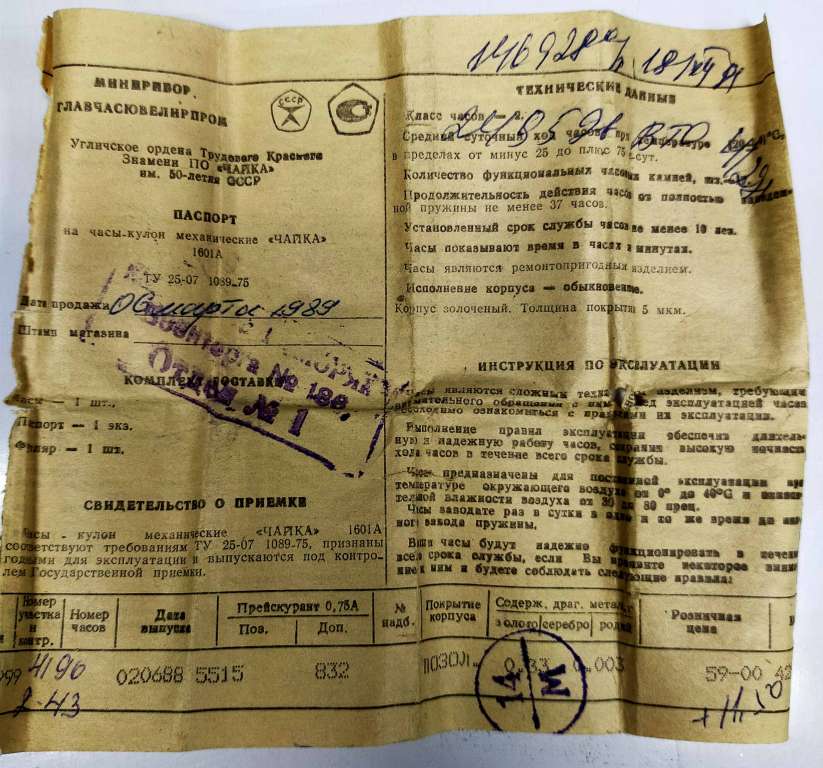 МИНПРИБОР
ГЛАВЧАСЮВЕЛИРПРОМ
СССР
Угличское ордена Трудового Красного
Знамени ПО «ЧАЙКА»
им. 50-летия СССР
ПАСПОРТ
на часы-кулон механические «ЧАЙКА»
1601А
ТУ 25-07 1089-75
Дата продажи 06 марта 1989
Штамп магазина
Военторга № 188.
Отдел № 1
КОМПЛЕКТ ПОСТАВКИ
Часы — 1 шт.
Паспорт — 1 экз.
Футляр — 1 шт.
СВИДЕТЕЛЬСТВО О ПРИЕМКЕ
Часы - кулон механические «ЧАЙКА» 1601А
соответствуют требованиям ТУ 25-07 1089-75, признаны
годными для эксплуатации и выпускаются под контро-
лем Государственной приемки.
ТЕХНИЧЕСКИЕ ДАННЫЕ
Класс часов —
Средний суточный ход часов при температуре
в пределах от минус 25 до плюс 75 с/сут.
Количество функциональных часовых камней, шт.
Продолжительность действия часов от полностью заведен-
ной пружины не менее 37 часов.
Установленный срок службы часов не менее 10 лет.
Часы показывают время в часах и минутах.
Часы являются ремонтопригодным изделием.
Исполнение корпуса — обыкновенное.
Корпус золоченый. Толщина покрытия 5 мкм.
ИНСТРУКЦИЯ ПО ЭКСПЛУАТАЦИИ
Часы являются сложным техническим изделием, требующим
внимательного обращения с ними. Перед эксплуатацией часов
необходимо ознакомиться с правилами их эксплуатации.
Выполнение правил эксплуатации обеспечит длитель-
ную и надежную работу часов, сохранив высокую точность
хода часов в течение всего срока службы.
Часы предназначены для постоянной эксплуатации при
температуре окружающего воздуха от 0° до 40°С и относи-
тельной влажности воздуха от 30 до 80 проц.
Часы заводите раз в сутки в одно и то же время до пол-
ного завода пружины.
Ваши часы будут надежно функционировать в течение
всего срока службы, если Вы проявите некоторое внима-
ние к ним и будете соблюдать следующие правила:
Номер участка и контр.
Номер часов
Дата выпуска
Прейскурант 0,75А
Поз.
Доп.
№ надб.
Покрытие корпуса
Содерж. драг. метал.,
золото
серебро
родий
Розничная цена
999 4196 020688 5515 832 ПОЗОЛ. 0.003 59-00 42
2-43
14
М